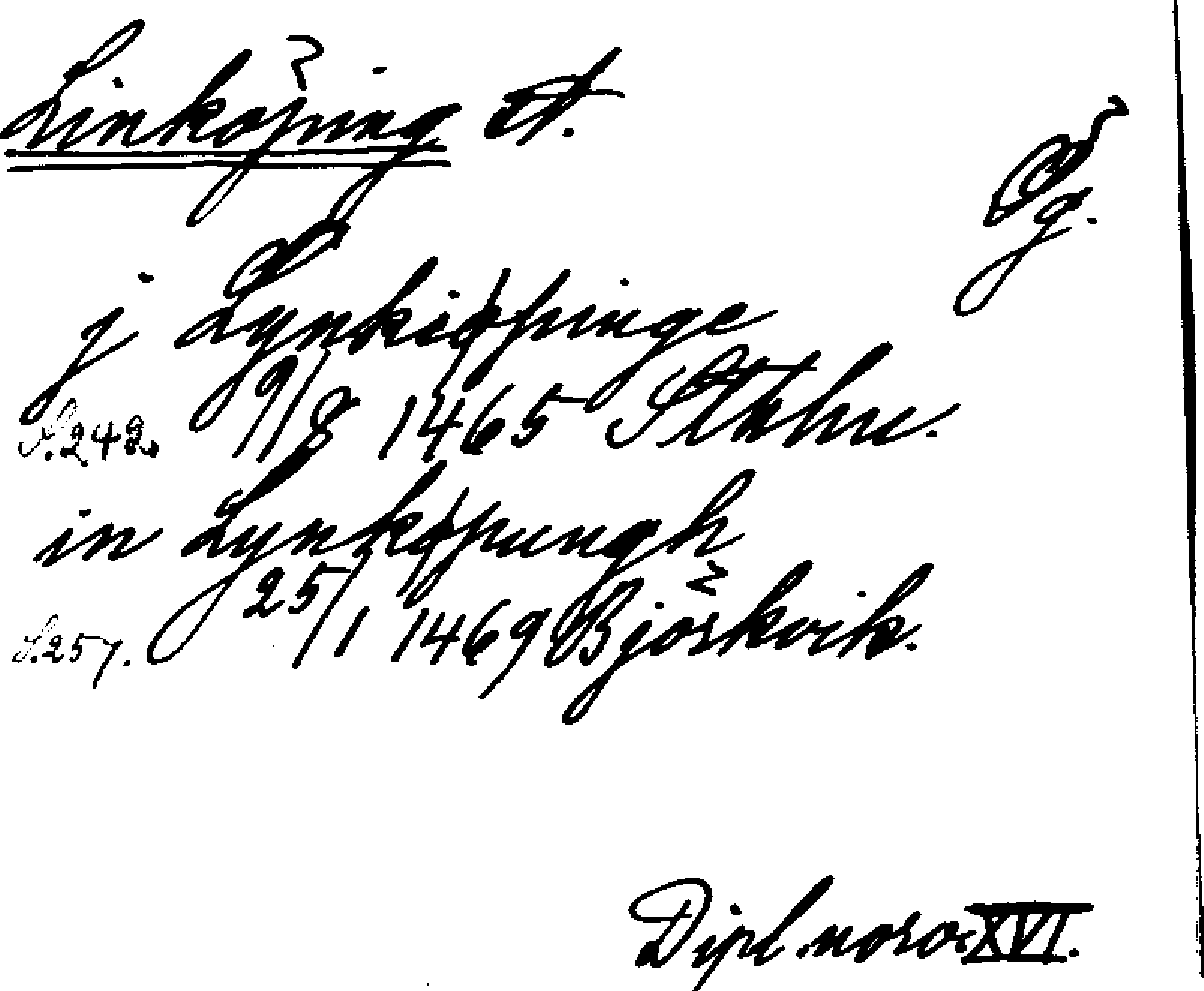 Linköping st.
Ög.
j Lynkiøpinge
S. 242. 9/8 1465 Sthlm.
in Lynkøpungh
S. 257. 25/1 1469 Björkvik.
Dipl. norv. XVI.